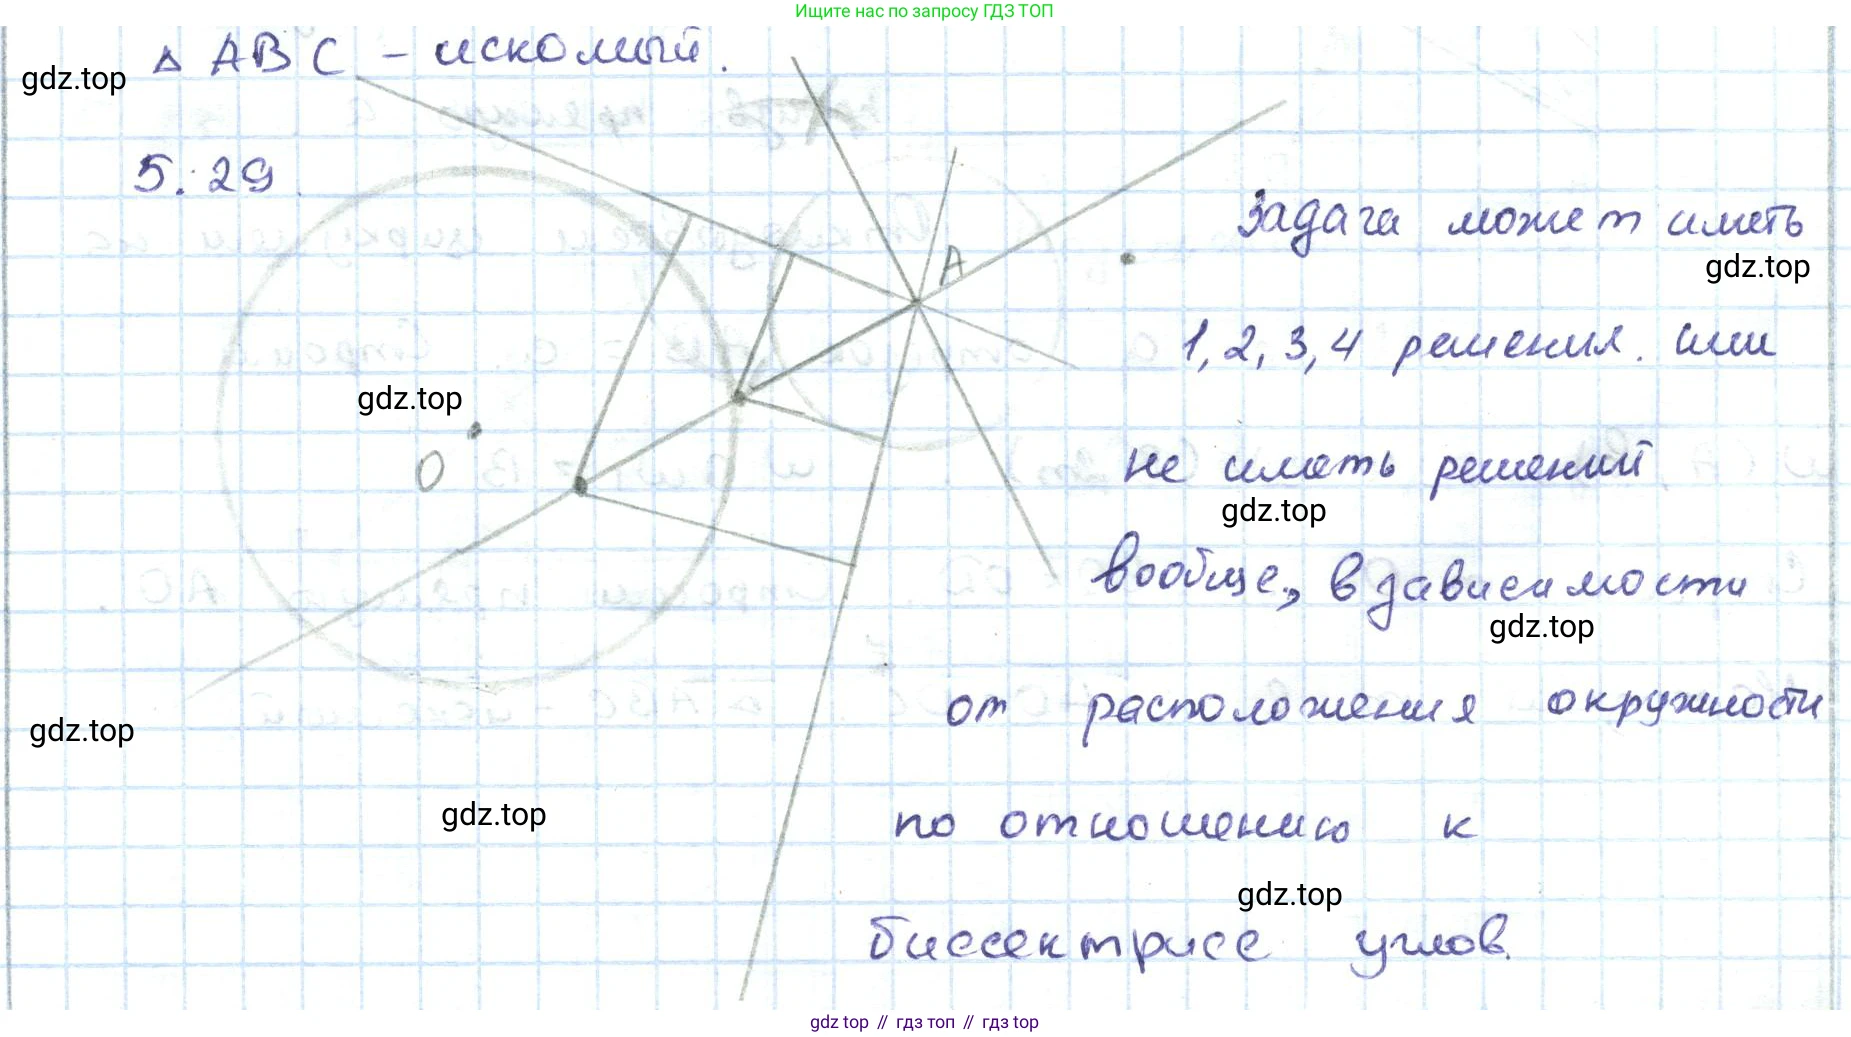 Ищите нас по запросу ГДЗ ТОП
△ ABC - искомый.
gdz.top
5.29.
A
Задача может иметь
gdz.top
1, 2, 3, 4 решения. или
gdz.top
O
не иметь решений
gdz.top
вообще, в зависимости
gdz.top
от расположения окружности
gdz.top
gdz.top
по отношению к
gdz.top
биссектрисе углов.
gdz top // гдз топ // гдз top